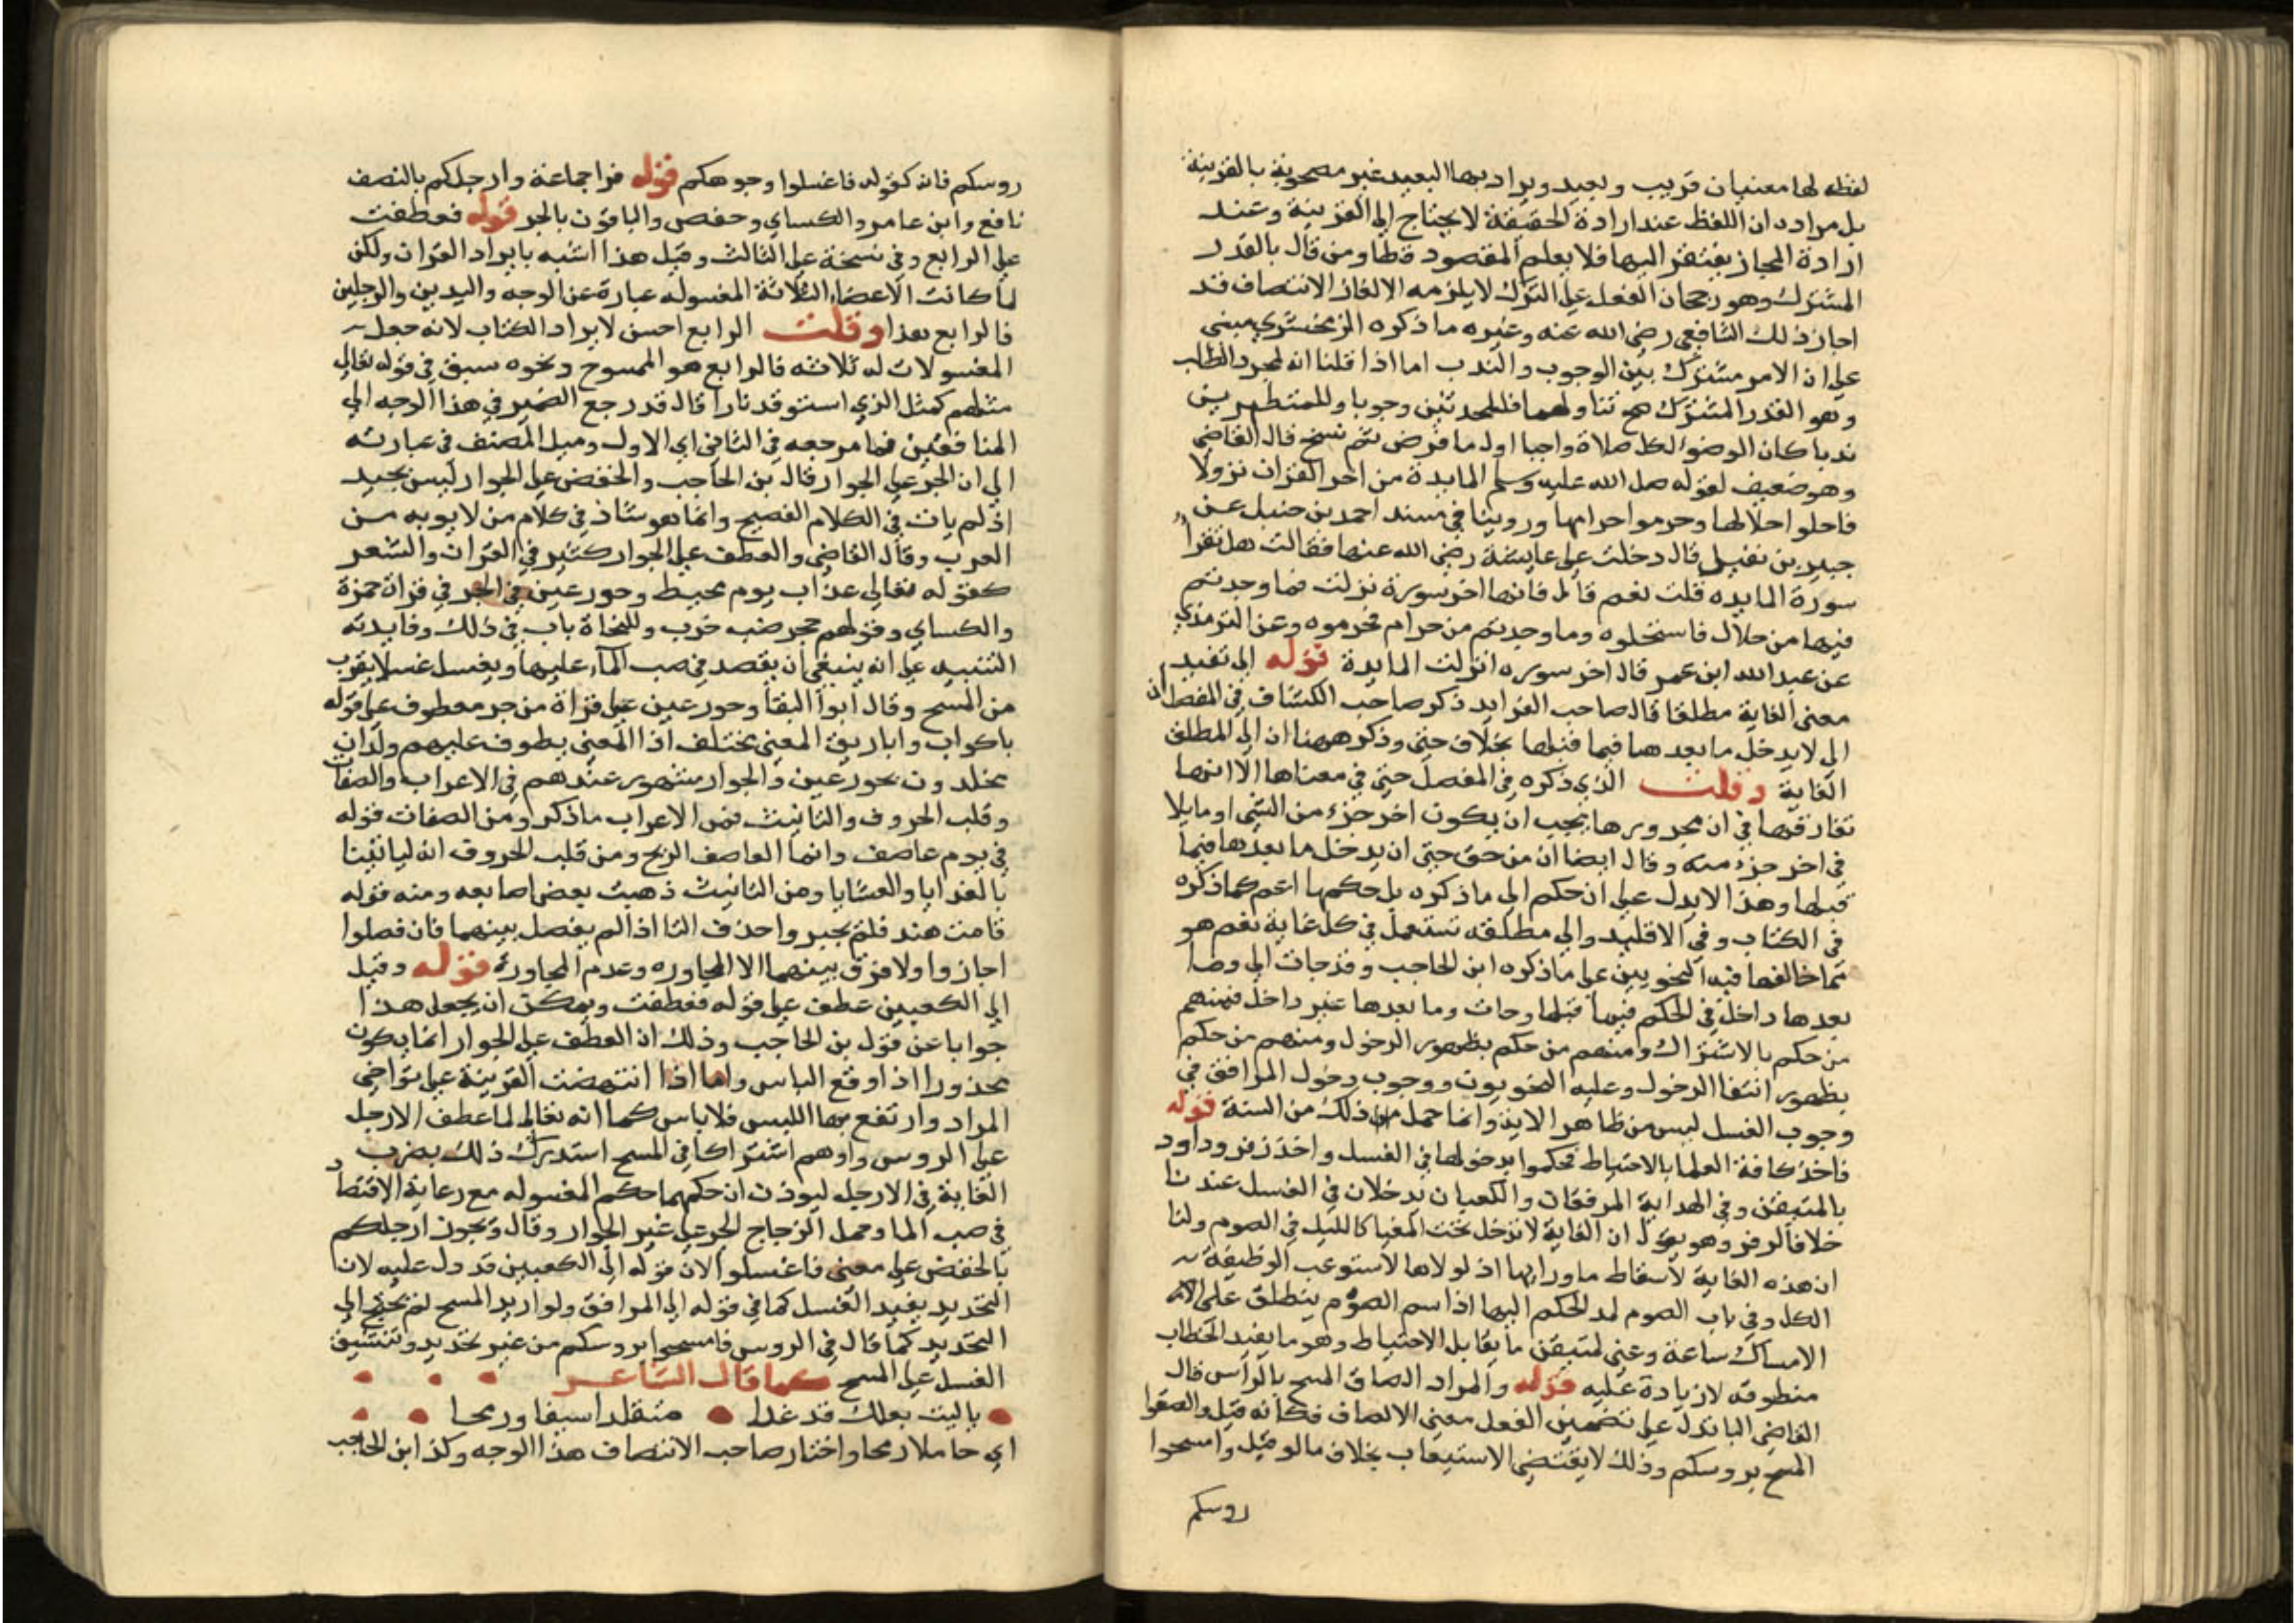 لفظه لها معنيان قريب وبعيد ويراد بها البعيد غير مصحوبة بالقرينة
بل مراده ان اللفظ عند ارادة الحقيقة لا يحتاج الي القرينة وعند
ارادة المجاز يفتقر اليها فلا يعلم المقصود قطا ومن قال بالقدر
المشترك وهو رجحان الفعل علي الترك لا يلزمه الالغاز الانتصاف قد
اجاز ذلك الشافعي رضي الله عنه وغيره ما ذكره الزمخشري مبني
علي ان الامر مشترك بين الوجوب والندب اما اذا قلنا انه لمجرد الطلب
وهو القدر المشترك صح تناولهما فللمحدثين وجوبا وللمتطهرين
ندبا كان الوضوء لكل صلاة واجبا اول ما فرض ثم نسخ قال القاضي
وهو ضعيف لقوله صل الله عليه وسلم المايدة من اخر القران نزولا
فاحلوا حلالها وحرموا حرامها وروينا في مسند احمد بن حنبل عن
جبير بن نفيل قال دخلت علي عايشة رضي الله عنها فقالت هل تقرا
سورة المايده قلت نعم قال فانها اخر سورة نزلت فما وجدتم
فيها من حلال فاستحلوه وما وجدتم من حرام فحرموه وعن الترمذي
عن عبد الله ابن عمر قال اخر سوره انزلت المايدة قوله الي تفيد
معني الغاية مطلقا قال صاحب الفرايد ذكر صاحب الكشاف في المفصل ان
الي لا يدخل ما بعدها فيما قبلها بخلاف حتي وذكر ههنا ان الي المطلق
الغاية وقلت الذي ذكره في المفصل حتي في معناها الا انها
تفارقها في ان مجرورها يجب ان يكون اخر جزء من الشي او ما يلا
في اخر جزء منه وقال ايضا ان من حق حتي ان يدخل ما بعدها فيما
قبلها وهذا لا يدل علي ان حكم الي ما ذكره بل حكمها اعم كما ذكره
في الكتاب وفي الاقليد والي مطلقه تستعمل في كل غاية نعم هو
مما خالفها فيه النحويين علي ما ذكره ابن الحاجب وقد جات الي وما
بعدها داخل في الحكم فيما قبلها وجات وما بعدها غير داخل فمنهم
من حكم بالاشتراك ومنهم من حكم بظهور الدخول ومنهم من حكم
بظهور انتفا الدخول وعليه النحويون ووجوب دخول المرافق في
وجوب الغسل ليس من ظاهر الاية وانما حمل من ذلك من السنة قوله
فاخذ كافة العلما بالاحتياط فحكموا بدخولها في الغسل واخذ زفر وداود
بالمتيقن وفي الهداية المرفقان والكعبان يدخلان في الغسل عندنا
خلافا لزفر وهو يقول ان الغاية لا تدخل تحت المغيا كالليل في الصوم ولنا
ان هذه الغاية لاسقاط ما وراها اذ لولاها لاستوعب الوظيفة
الكل وفي باب الصوم لمد الحكم اليها اذ اسم الصوم ينطلق علي
الامساك ساعة وعني لمتيقن ما يقابل الاحتياط وهو ما يفيد الخطاب
منطوقه لا زيادة عليه قوله والمراد الصاق المسح بالراس قال
القاضي البا تدل علي تضمين الفعل معني الالصاق فكانه قيل والصقوا
المسح بروسكم وذلك لا يقتضي الاستيعاب بخلاف ما لو قيل وامسحوا
روسكم
روسكم فانه كقوله فاغسلوا وجوهكم قوله قرا جماعة وارجلكم بالنصف
نافع وابن عامر والكساي وحفص والباقون بالجر قوله فعطفت
علي الرابع وفي نسخة علي الثالث وقيل هذا اشبه بايراد القران ولكن
لما كانت الاعضاء الثلاثة المغسوله عبارة عن الوجه واليدين والرجلين
فالرابع بهذا وقلت الرابع احسن لايراد الكتاب لانه جعل
المغسولات له ثلاثه فالرابع هو الممسوح ونحوه سبق في قوله تعالي
مثلهم كمثل الذي استوقد نارا قال قد رجع الضمير في هذا الوجه الي
المنافقين فما مرجعه في الثاني اي الاول وميل المصنف في عبارته
الي ان الجر علي الجوار قال بن الحاجب والخفض علي الجوار ليس بجيد
اذ لم يات في الكلام الفصيح وانما هو شاذ في كلام من لا يوبه من
العرب وقال القاضي والعطف علي الجوار كثير في القران والشعر
كقوله تعالي عذاب يوم محيط وحور عين في الجر في قراة حمزة
والكساي وقولهم حجر ضب خرب وللنحاة باب في ذلك وفايدته
التنبيه علي انه ينبغي ان يقصد في صب الماء عليها ويغسل غسلا يقرب
من المسح وقال ابوا البقا وحور عين علي قراة من جر معطوف علي قوله
باكواب واباريق المعني مختلف اذ المعني يطوف عليهم ولدان
مخلدون بحور عين والجوار مشهور عندهم في الاعراب والصفات
وقلب الحروف والتانيث فمن الاعراب ما ذكر ومن الصفات قوله
في يوم عاصف وانما العاصف الريح ومن قلب الحروف انه لياتينا
بالغدايا والعشايا ومن التانيث ذهبت بعض اصابعه ومنه قوله
قامت هند فلم يجيروا حذف التا اذا لم يفصل بينهما فان فصلوا
اجازوا ولا فرق بينهما الا المجاوره وعدم المجاورة قوله وقيل
الي الكعبين عطف علي قوله فعطفت ويمكن ان يجعل هذا
جوابا عن قول بن الحاجب وذلك ان العطف علي الجوار انما يكون
محذورا اذا وقع الباس واما اذا انتهضت القرينة علي تواخي
المراد وارتفع بها اللبس فلا باس كما انه تعالي لما عطف الارجل
علي الروس واوهم اشتراكا في المسح استدرك ذلك بضرب
الغاية في الارجل ليوذن ان حكمهما حكم المغسوله مع رعاية الاقتصاد
في صب الما وحمل الزجاج الجر علي غير الجوار وقال ويجوز ارجلكم
بالخفض علي معني فاغسلوا لان قوله الي الكعبين قد دل عليه لان
التحديد يفيد الغسل كما في قوله الي المرافق ولو اريد المسح لم يحتج الي
التحديد كما قال في الروس فامسحوا بروسكم من غير تحديد وتنسيق
الغسل علي المسح كما قال الشاعر
ياليت بعلك قد غدا متقلدا سيفا ورمحا
اي حاملا رمحا واختار صاحب الانتصاف هذا الوجه وكذا ابن الحاجب